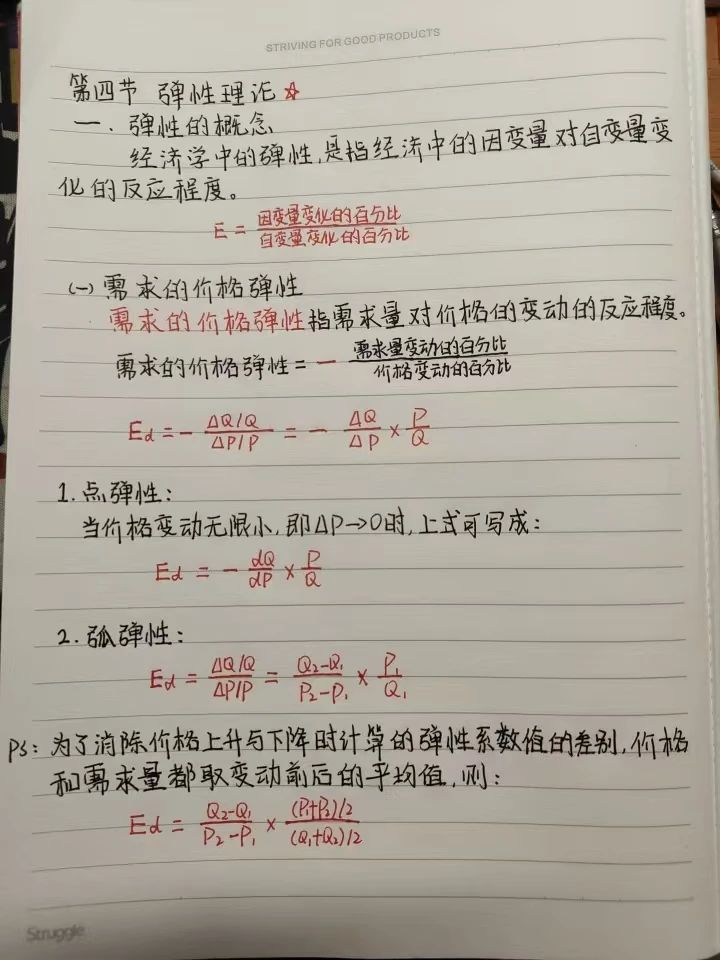 STRIVING FOR GOOD PRODUCTS
第四节 弹性理论 ☆
一. 弹性的概念
经济学中的弹性,是指经济中的因变量对自变量变
化的反应程度。
E = 因变量变化的百分比 / 自变量变化的百分比
(一) 需求的价格弹性
需求的价格弹性指需求量对价格的变动的反应程度。
需求的价格弹性 = - 需求量变动的百分比 / 价格变动的百分比
Ed = - (ΔQ/Q)/(ΔP/P) = - ΔQ/ΔP × P/Q
1. 点弹性:
当价格变动无限小,即ΔP→0时,上式可写成:
Ed = - dQ/dP × P/Q
2. 弧弹性:
Ed = (ΔQ/Q)/(ΔP/P) = (Q₂-Q₁)/(P₂-P₁) × P₁/Q₁
PS: 为了消除价格上升与下降时计算的弹性系数值的差别,价格
和需求量都取变动前后的平均值,则:
Ed = (Q₂-Q₁)/(P₂-P₁) × ((P₁+P₂)/2)/((Q₁+Q₂)/2)
Struggle